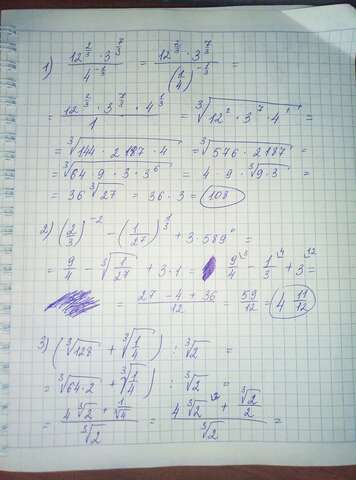 1) (12^(2/3) · 3^(7/3)) / 4^(-1/3) = (12^(2/3) · 3^(7/3)) / (1/4)^(-1/3) =
= (12^(2/3) · 3^(7/3) · 4^(1/3)) / 1 = ∛(12² · 3⁷ · 4¹)
= ∛(144 · 2187 · 4) = ∛(576 · 2187) =
= ∛(64 · 9 · 3 · 3⁶) = 4 · 9 · ∛(9·3) =
= 36 ∛27 = 36 · 3 = 108
2) (2/3)^(-2) - (1/27)^(1/3) + 3 · 589⁰ =
= 9/4 - ∛(1/27) + 3 · 1 = 9/4 \3 - 1/3 \4 + 3 \12 =
= (27 - 4 + 36)/12 = 59/12 = 4 11/12
3) (∛128 + ∛(1/4)) : ∛2 =
= (∛(64·2) + ∛(1/4)) : ∛2 =
= (4∛2 + 1/∛4) / ∛2 = (4∛2 + ∛2/2) / ∛2 =